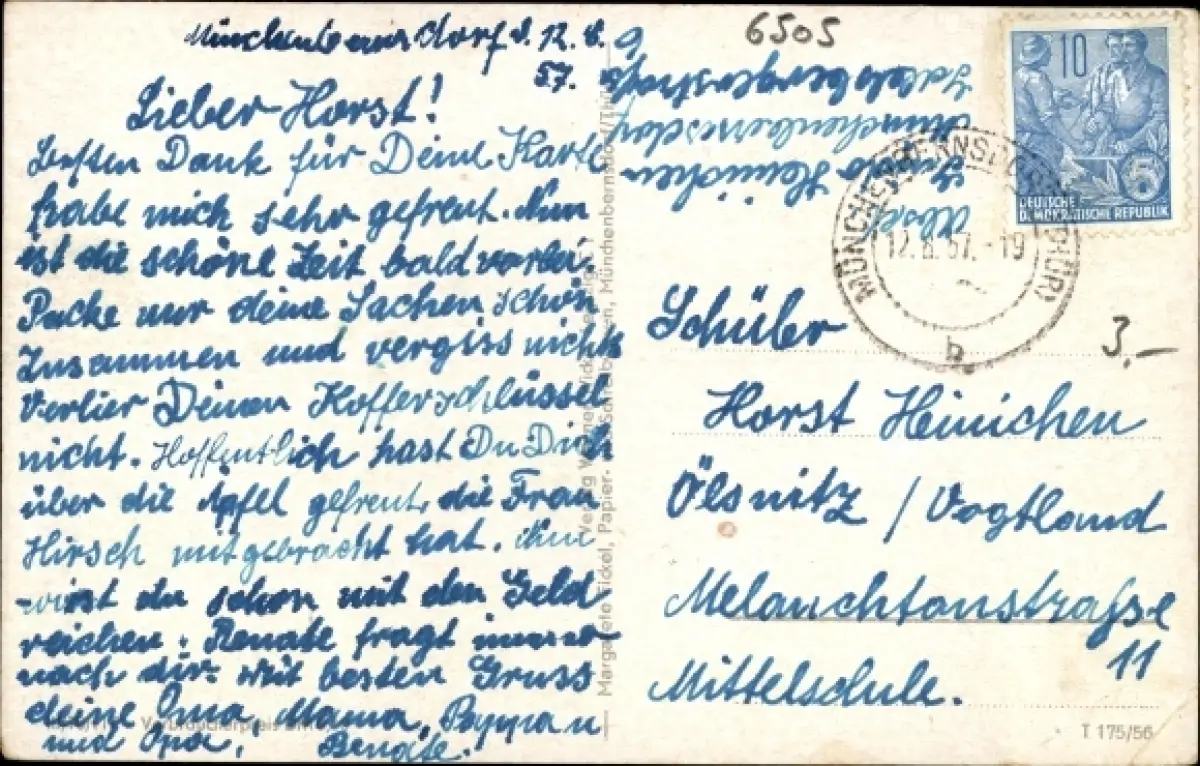 Münchenbernsdorf d. 12. 8.
57.
Lieber Horst!
Besten Dank für Deine Karte
habe mich sehr gefreut. Nun
ist die schöne Zeit bald vorbei.
Packe nur deine Sachen schön
Zusammen und vergiss nichts
Verlier Deinen Kofferschlüssel
nicht. Hoffentlich hast Du Dich
über die Äpfel gefreut, die Frau
Hirsch mitgebracht hat. Nun
wirst du schon mit den Geld
reichen. Renate fragt immer
nach dir. Mit besten Gruss
deine Oma, Mama, Pappa u
und Opa, Renate.
6505
Abs.
Heinichen
Münchenbernsdorf
DEUTSCHE
DEMOKRATISCHE REPUBLIK
10
5
MÜNCHENBERNSDORF (THÜR)
12.8.57.-19
b
3.-
Schüler
Horst Heinichen
Ölsnitz / Vogtland
Melanchtonstraße
11
Mittelschule.
Margarete Fickel, Papier- Schreibwaren, Münchenbernsdorf/Thür.
Verlag
Verbraucherpreis
T 175/56